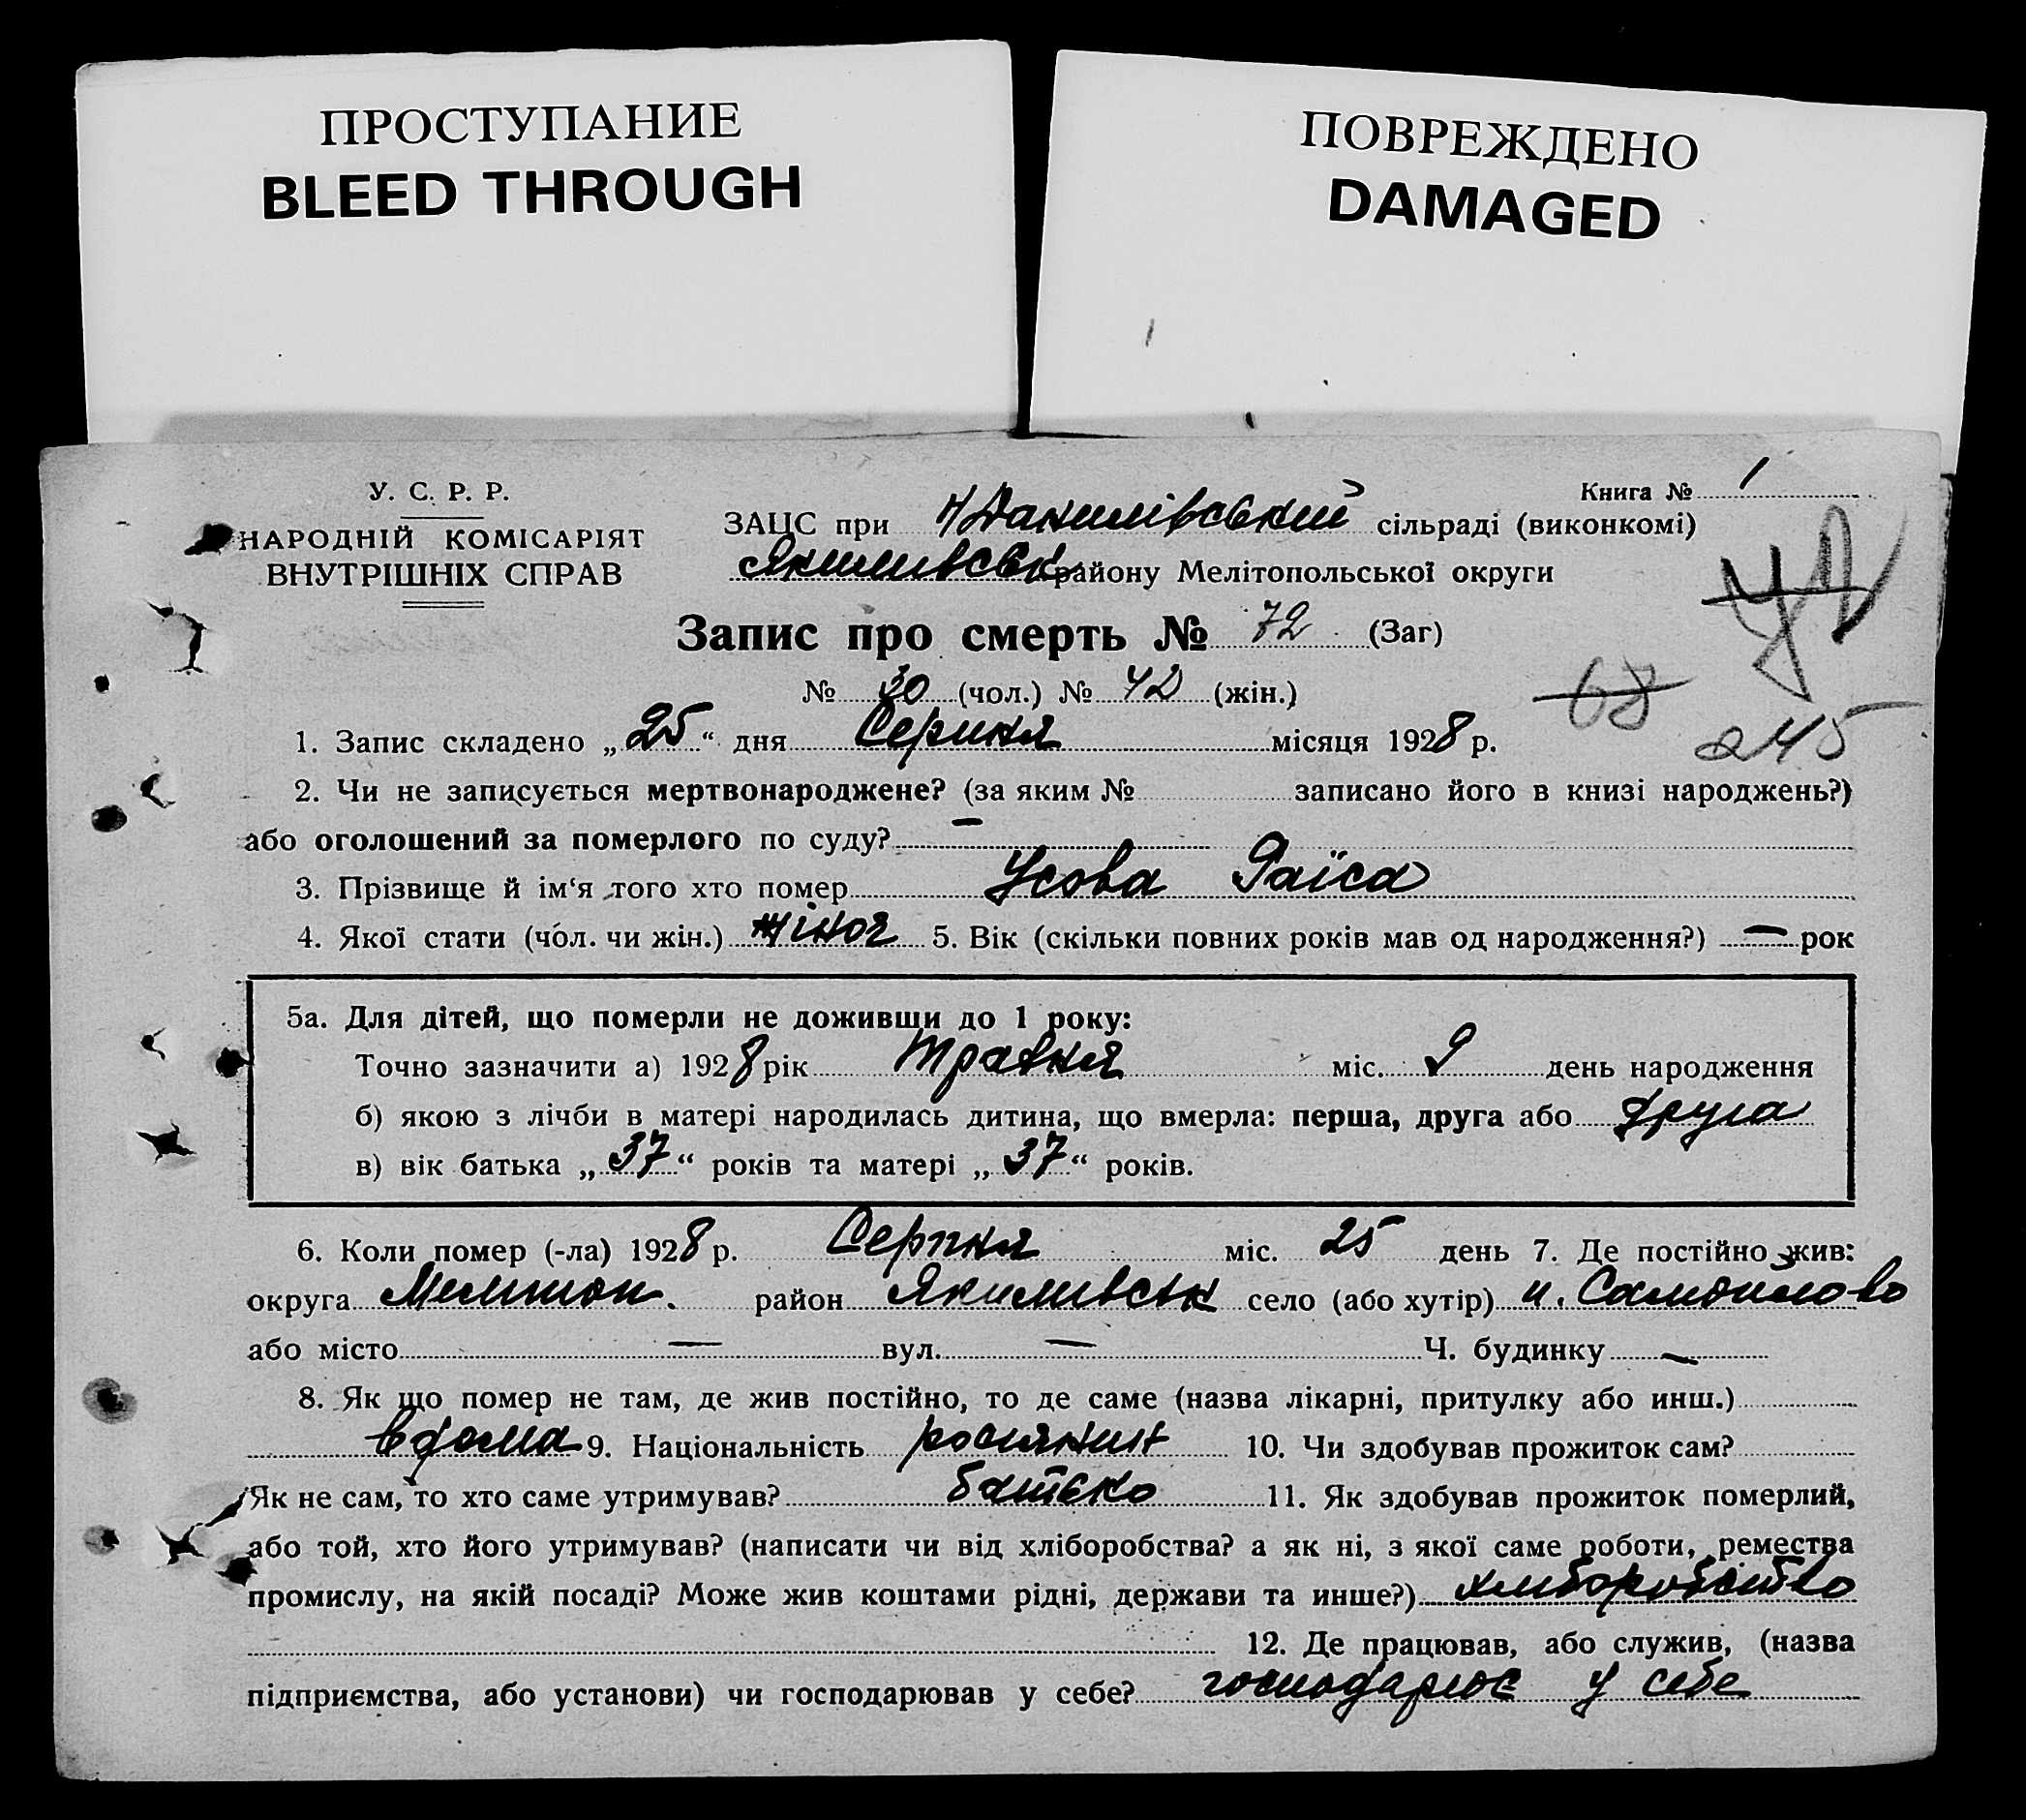 ПРОСТУПАНИЕ
BLEED THROUGH
ПОВРЕЖДЕНО
DAMAGED
У. С. Р. Р.
НАРОДНІЙ КОМІСАРІЯТ
ВНУТРІШНІХ СПРАВ
Книга № 1
ЗАЦС при Н Данилівський сільраді (виконкомі)
Якимивськ району Мелітопольської округи
Запис про смерть № 72 (Заг)
68
№ 30 (чол.) № 42 (жін.)
245
1. Запис складено „25“ дня Серпня місяця 1928 р.
2. Чи не записується мертвонароджене? (за яким № записано його в книзі народжень?)
або оголошений за померлого по суду? —
3. Прізвище й ім‘я того хто помер Усова Раїса
4. Якої стати (чол. чи жін.) жіноч 5. Вік (скільки повних років мав од народження?) — рок
5а. Для дітей, що померли не доживши до 1 року:
Точно зазначити а) 1928 рік Травня міс. 9 день народження
б) якою з лічби в матері народилась дитина, що вмерла: перша, друга або друга
в) вік батька „37“ років та матері „37“ років.
6. Коли помер (-ла) 1928 р. Серпня міс. 25 день 7. Де постійно жив:
округа Мелитоп. район Якимивськ село (або хутір)
або місто — вул. — Ч. будинку —
8. Як що помер не там, де жив постійно, то де саме (назва лікарні, притулку або инш.)
вдома 9. Національність росиянин 10. Чи здобував прожиток сам?
Як не сам, то хто саме утримував? батько 11. Як здобував прожиток померлий,
або той, хто його утримував? (написати чи від хліборобства? а як ні, з якої саме роботи, ремества
промислу, на якій посаді? Може жив коштами рідні, держави та инше?) хліборобство
12. Де працював, або служив, (назва
підприємства, або установи) чи господарював у себе? господарює у себе